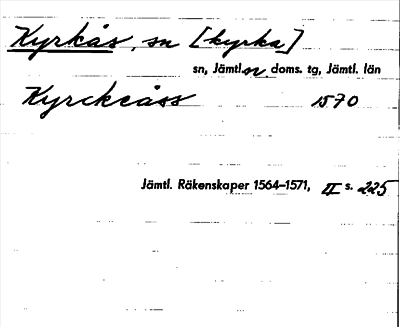 Kyrkås, sn [kyrka]
sn, Jämtl. n doms. tg, Jämtl. län
Kyrckeåss 1570
Jämtl. Räkenskaper 1564–1571, II s. 225